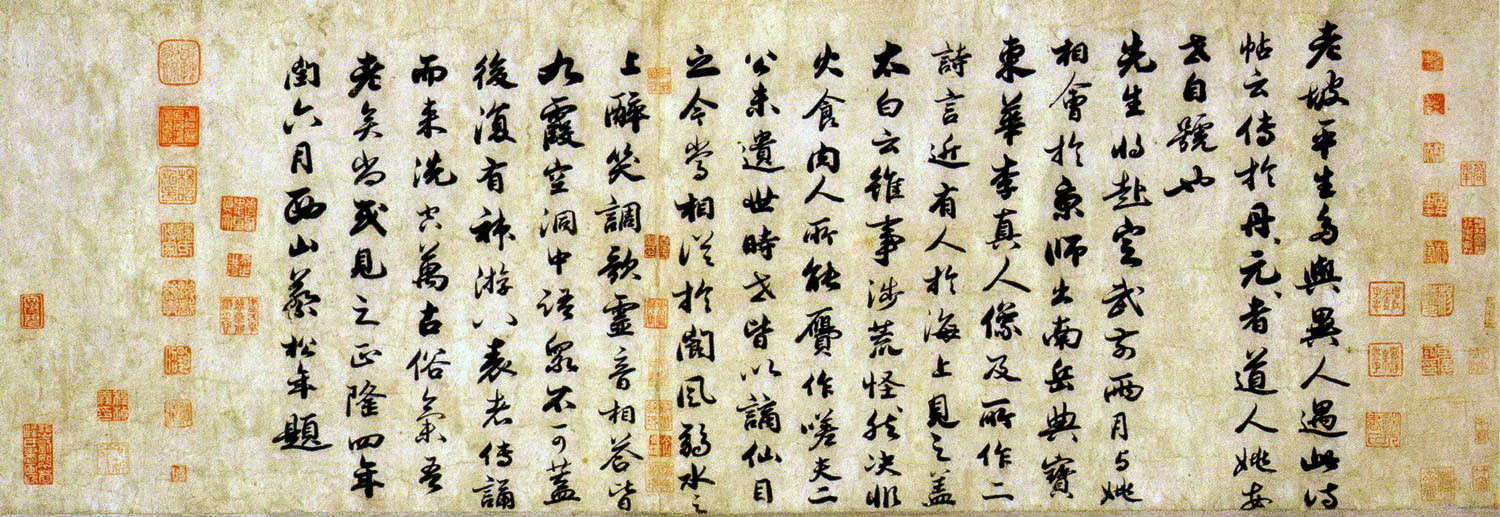 老坡平生多與異人遇此詩
帖云傳於丹元者道人姚安
世自號也
先生將赴定武前兩月与姚
相會於京師出南岳典寶
東華李真人像及所作二
詩言近有人於海上見之蓋
太白云雖事涉荒怪然決非
火食肉人所能贗作嗟夫二
公未遺世時世皆以謫仙目
之今當相從於閬風弱水之
上醉笑調歌靈音相答皆
九霞空洞中語眾不可蓋
後復有神游八表者傳誦
而來洗空萬古俗氣吾
老矣尚或見之正隆四年
閏六月西山蔡松年題